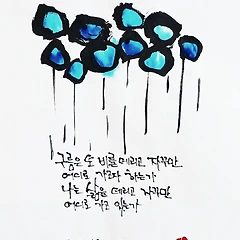 구름은 또 비를 데리고 자꾸만
어디로 가고자 하는가
나는 삶을 데리고 자꾸만
어디로 가고 있는가